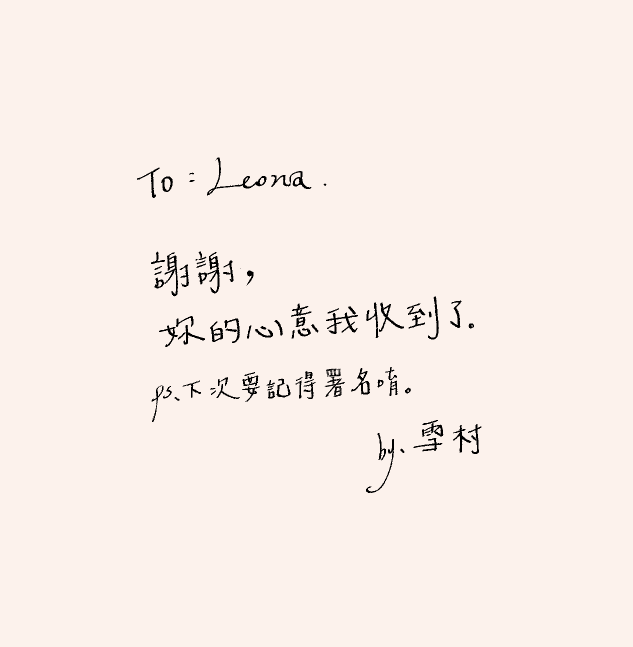 To：Leona.
謝謝，
妳的心意我收到了。
ps、下次要記得署名唷。
by、雪村